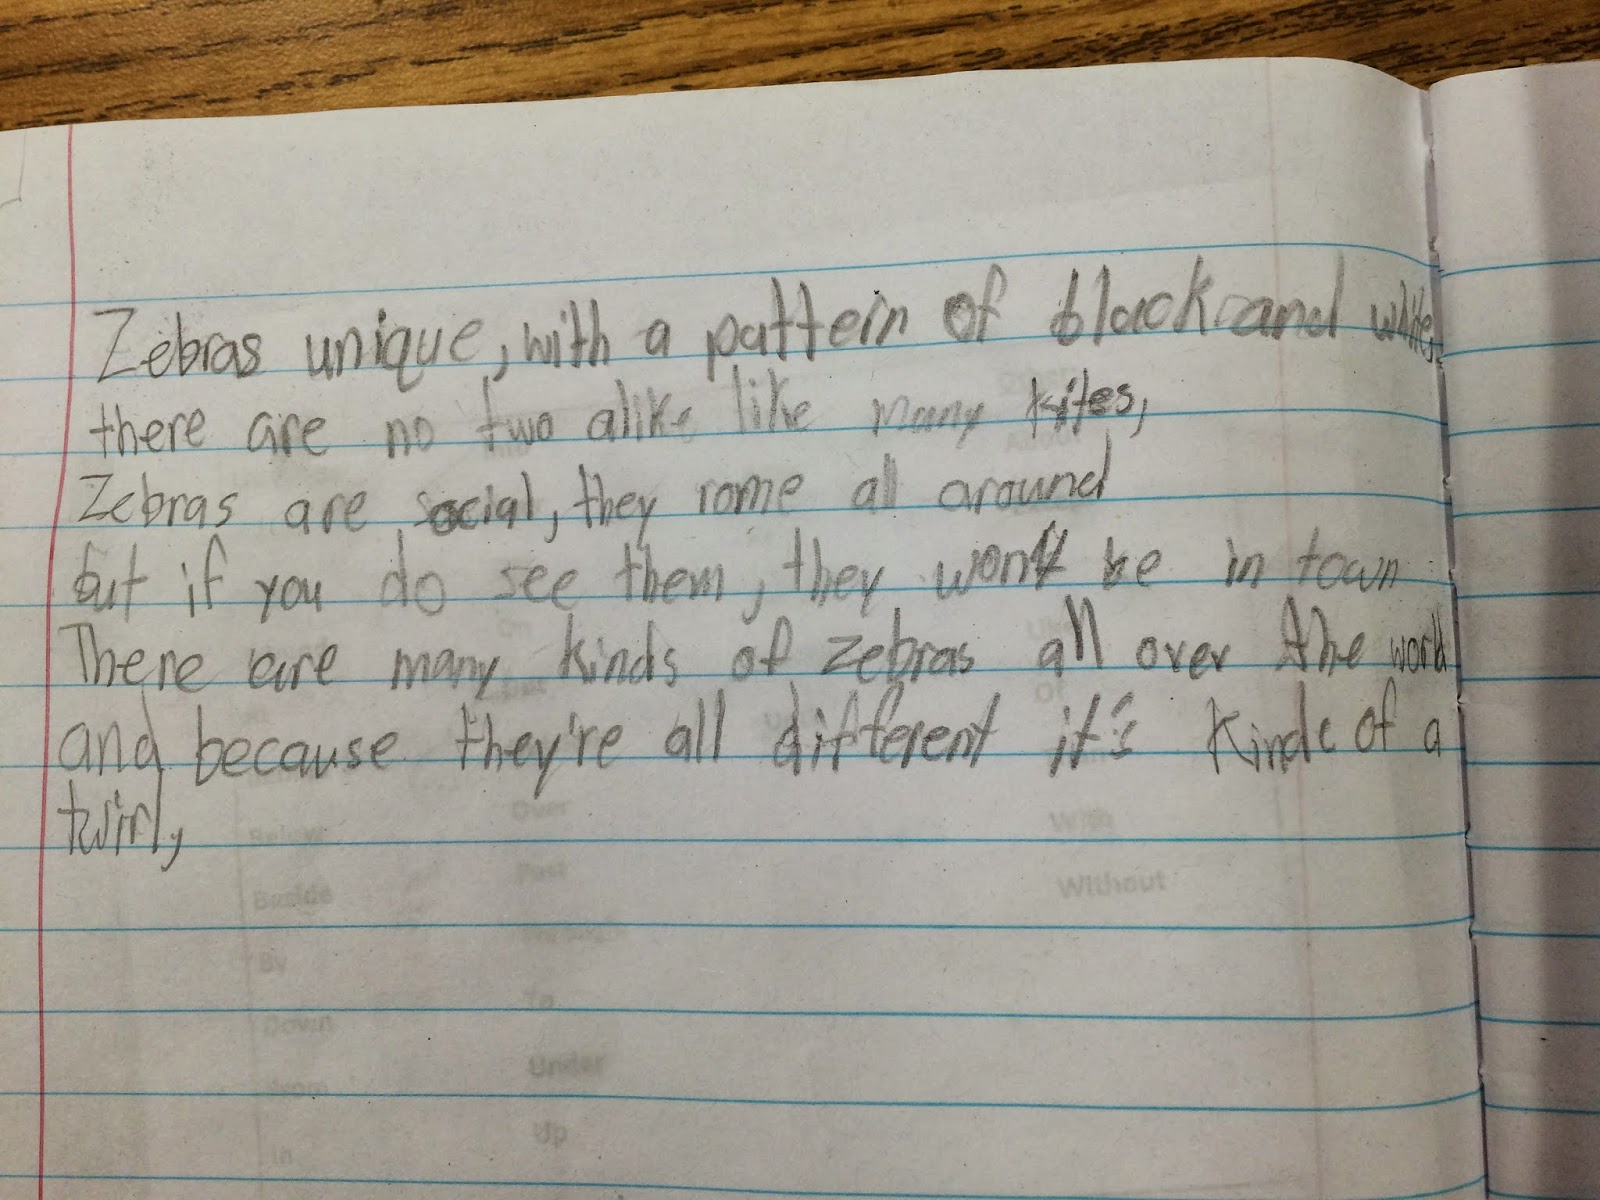 Zebras unique, with a pattern of black and white,
there are no two alike like many kites,
Zebras are social, they rome all around
but if you do see them, they won't be in town
There are many kinds of zebras all over the world
and because they're all different it's kinde of a
twirl,
Over
Below
With
Past
Beside
Without
By
To
Down
Under
from
Up
In